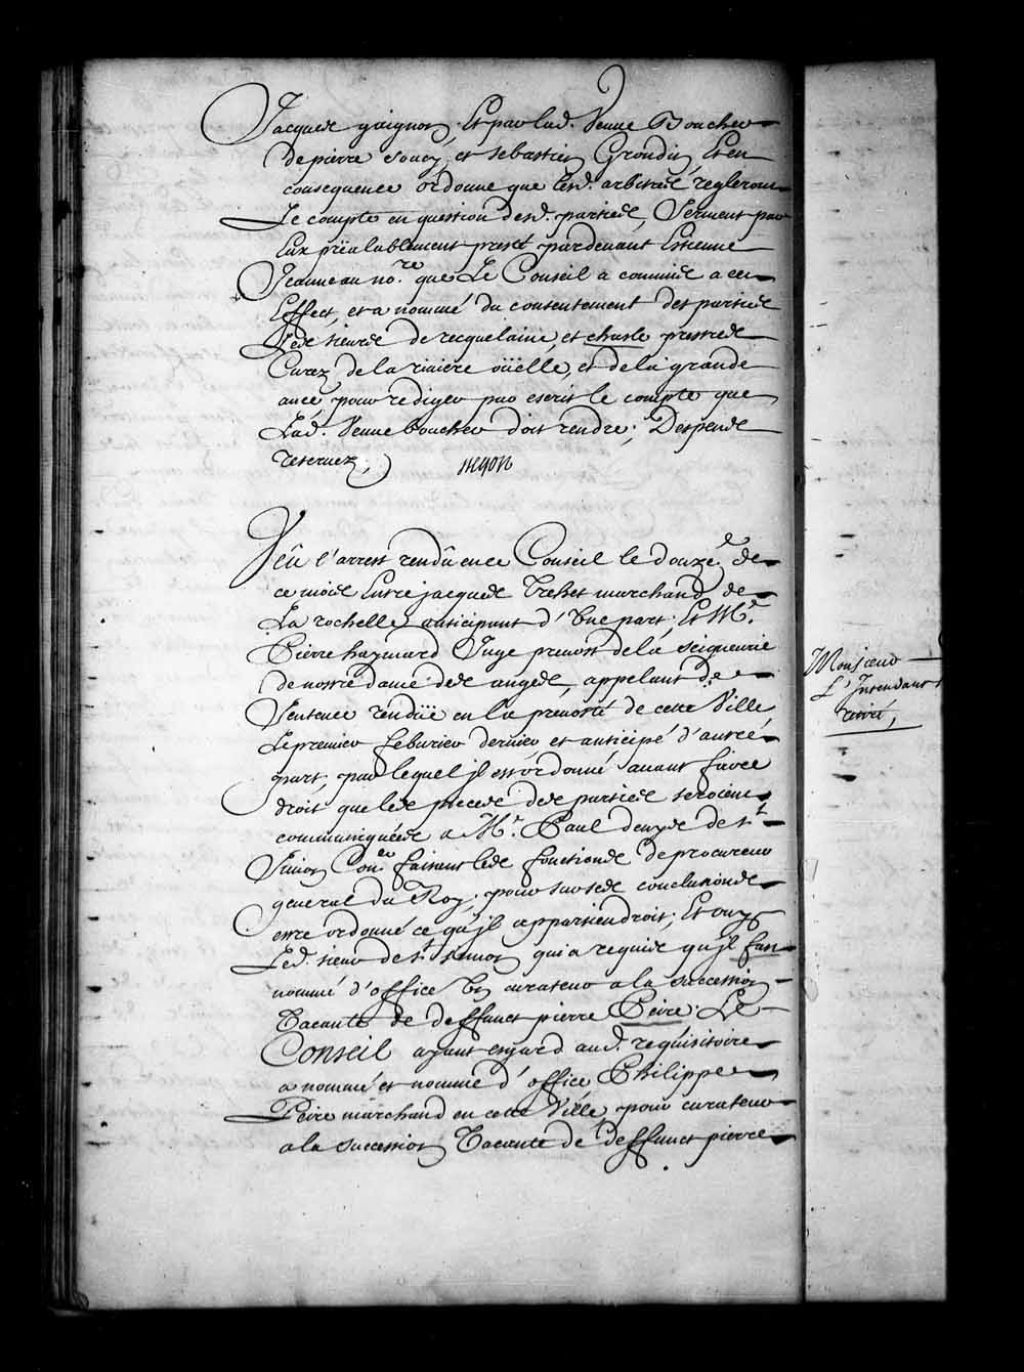 Jacques gaignon, Et par lad. Veuve Boucher
de pierre Soucy, et sebastien Grondin, Et en
consequence ordonne que lesd. arbitres regleront
Le compte en question desd. parties, Serment par
Eux préalablement presté pardevant Estienne
Jeanneau no.re que Le Conseil a commis a cet
Effect, et a nommé du consentement des parties
Les sieurs de recquelaine, et chasle prestres
Curez de la riviere oüelle, et de la grande
ance pour rediger par escrit le compte que
Lad. Veuve boucher doit rendre; Despens
reservez;
BEGON
Veû l'arrest rendû en ce Conseil le douze.e de
ce mois Entre jacques Trehet marchand de
La rochelle anticipant d'Une part; Et M.e
Pierre haymard Juge prevost de la seigneurie
de nostre dame des anges, appelant de
Sentence rendüe en la prevosté de cette Ville
Le premier febvrier dernier, et anticipé d'autre
part, par lequel jl est ordonné avant faire
droit que les pieces des parties seroient
communiquées a M.e Paul denys de s.t
Simon Con.er faisant les fonctions de procureur
general du Roy, pour sur ses conclusions
estre ordonné ce qu'jl appartiendroit; Et ouy
Led. sieur de s.t simon qui a requis qu'jl fust
nommé d'office Un curateur a la succession
Vacante de deffunct pierre Peire; Le
Conseil ayant esgard aud. requisitoire
a nommé et nomme d'office Philippe
Peire marchand en cette Ville, pour curateur
a la succession Vacante de deffunct pierre
Monsieur
L'Intendant
retiré,